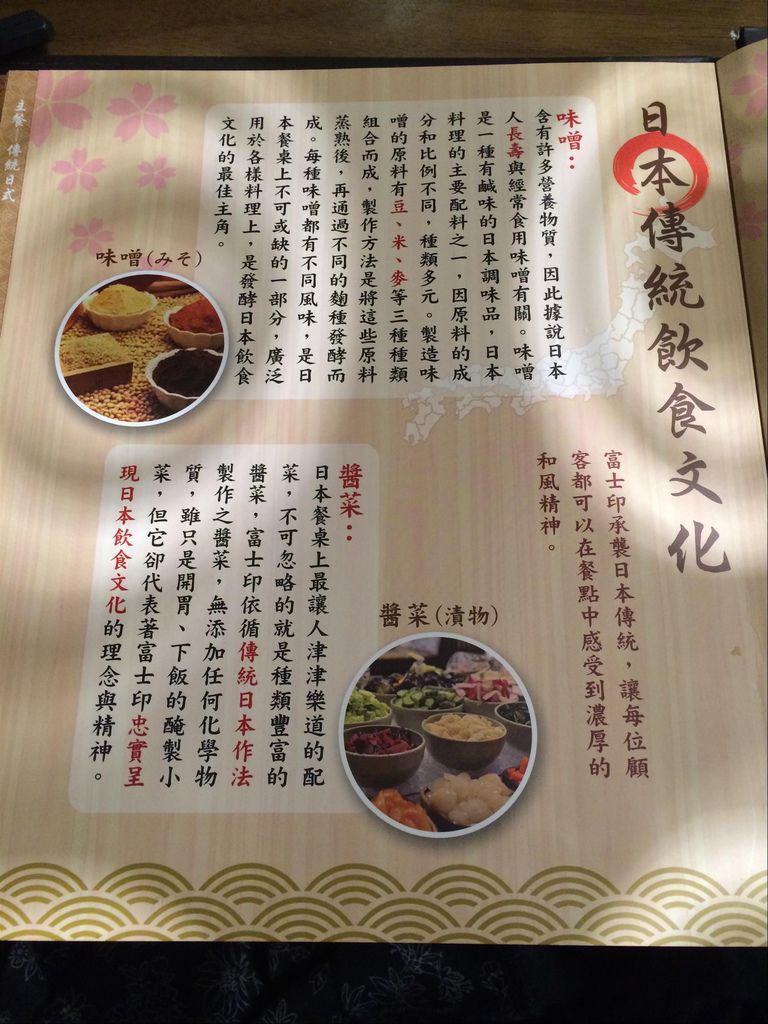 日本傳統飲食文化
富士印承襲日本傳統，讓每位顧
客都可以在餐點中感受到濃厚的
和風精神。
味噌：
含有許多營養物質，因此據說日本
人長壽與經常食用味噌有關。味噌
是一種有鹹味的日本調味品，日本
料理的主要配料之一，因原料的成
分和比例不同，種類多元。製造味
噌的原料有豆、米、麥等三種種類
組合而成，製作方法是將這些原料
蒸熟後，再通過不同的麴種發酵而
成。每種味噌都有不同風味，是日
本餐桌上不可或缺的一部分，廣泛
用於各樣料理上，是發酵日本飲食
文化的最佳主角。
味噌(みそ)
醬菜：
日本餐桌上最讓人津津樂道的配
菜，不可忽略的就是種類豐富的
醬菜，富士印依循傳統日本作法
製作之醬菜，無添加任何化學物
質，雖只是開胃、下飯的醃製小
菜，但它卻代表著富士印忠實呈
現日本飲食文化的理念與精神。
醬菜(漬物)
主餐 傳統日式